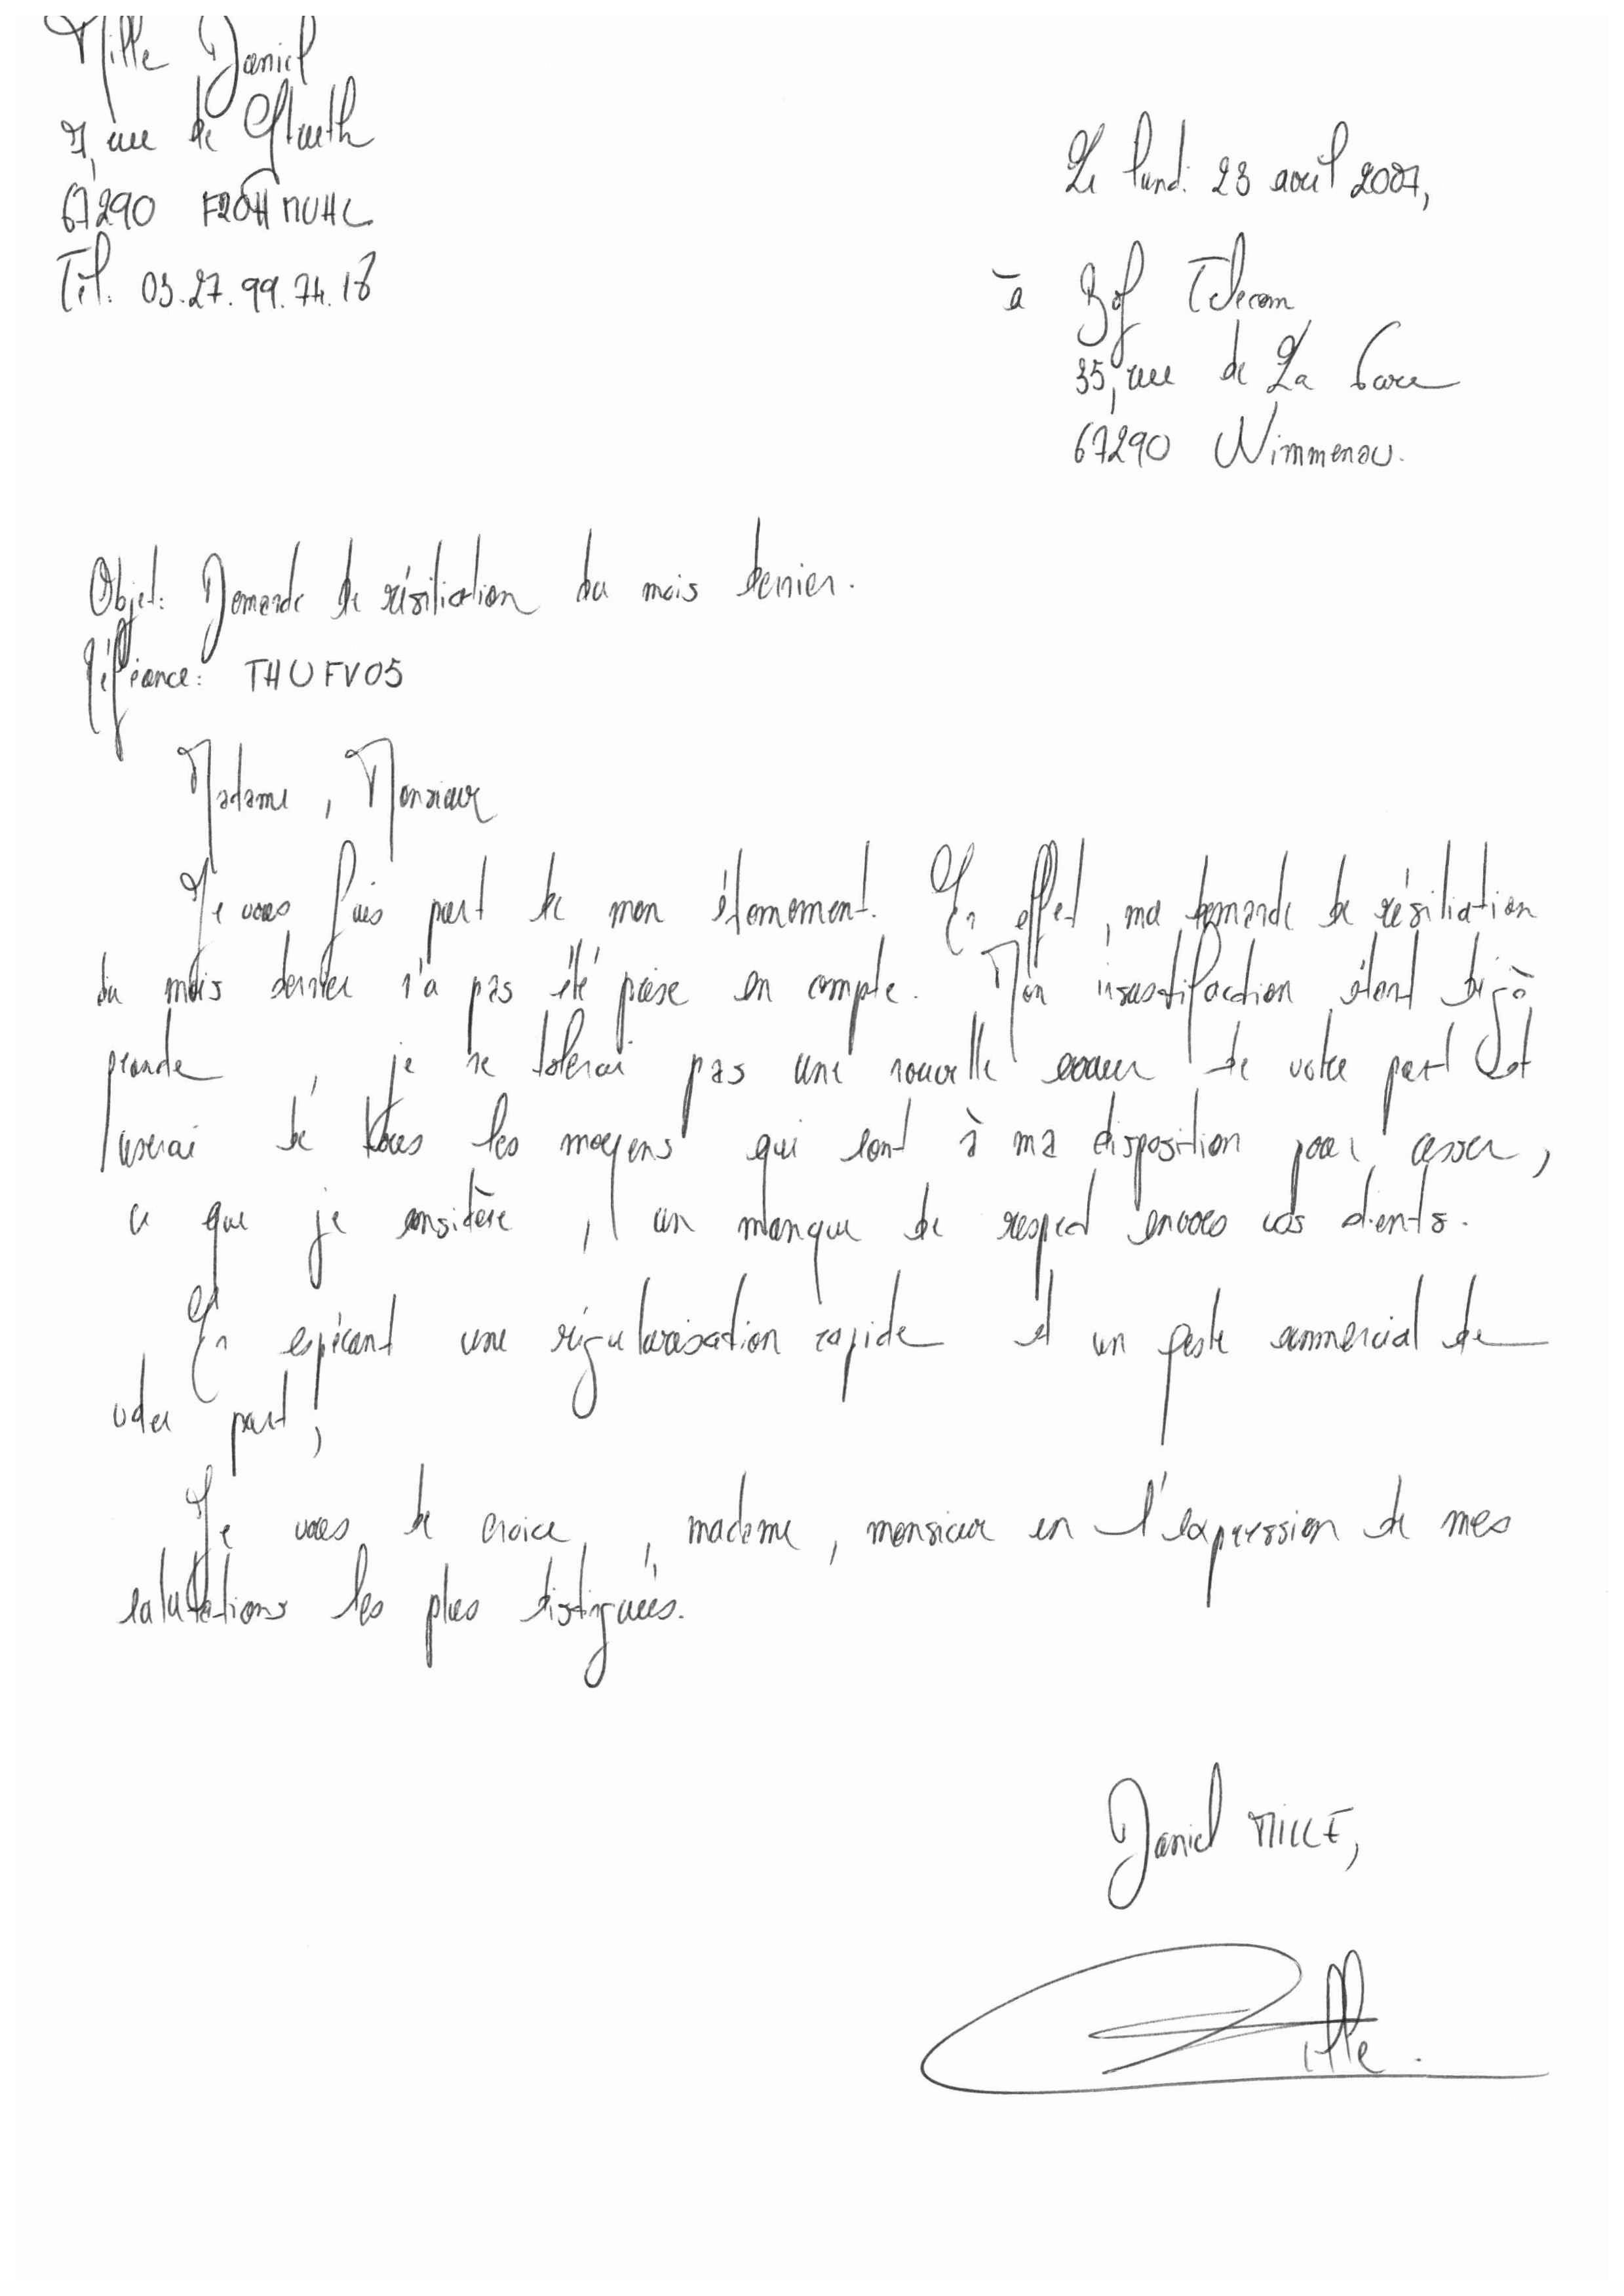 Mille Daniel
7, rue de
67290 FROHMUHL
Tél: 03.27.99.74.18
Le lundi 23 avril 2007,
à Bof Telecom
35, rue de La Gare
67290 Wimmenau.
Objet: Demande de résiliation du mois dernier.
Référance: THUFV05
Madame, Monsieur
Je vous fais part de mon étonnement. En effet, ma demande de résiliation
du mois dernier n'a pas été prise en compte. Mon insastifaction étant déjà
grande, je ne tolerai pas une nouvelle erreur de votre part et
userai de tous les moyens qui sont à ma disposition pour cesser,
ce que je considère, un manque de respect envers vos clients.
En espérant une régularisation rapide et un geste commercial de
votre part,
Je vous de croire, madame, monsieur en l'expression de mes
salutations les plus distinguées.
Daniel MILLE,
Mille.